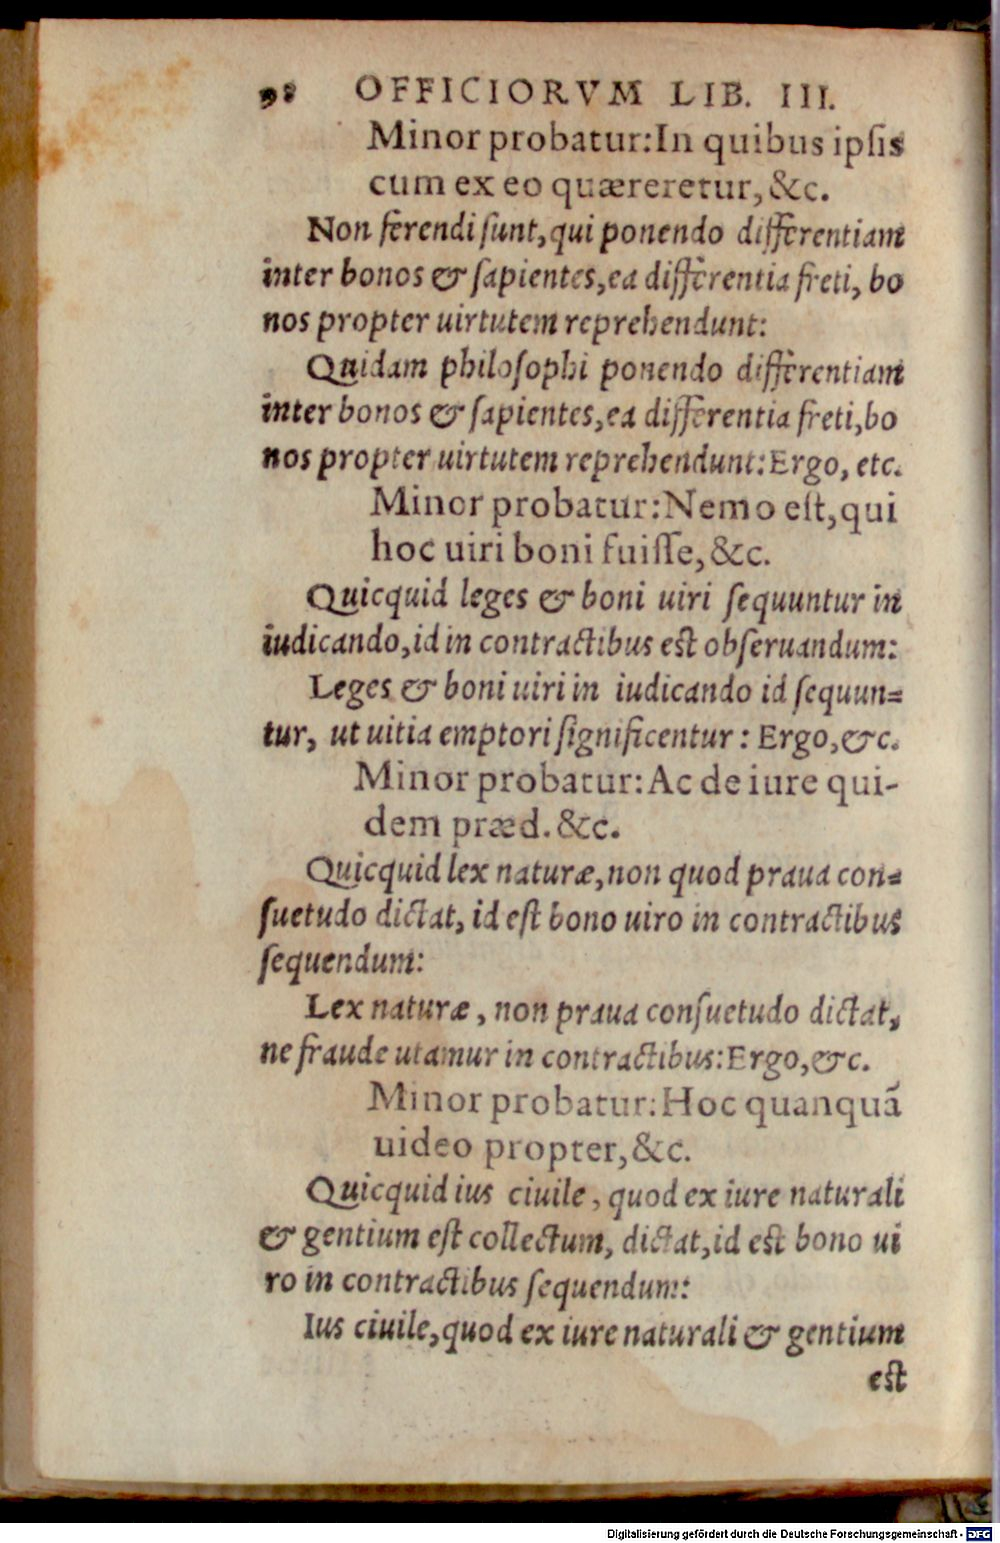 98 OFFICIORVM LIB. III.
Minor probatur: In quibus ipſis
cum ex eo quæreretur, &c.
Non ferendi ſunt, qui ponendo differentiam
inter bonos & ſapientes, ea differentia freti, bo
nos propter uirtutem reprehendunt:
Quidam philoſophi ponendo differentiam
inter bonos & ſapientes, ea differentia freti, bo
nos propter uirtutem reprehendunt: Ergo, etc.
Minor probatur: Nemo eſt, qui
hoc uiri boni fuiſſe, &c.
Quicquid leges & boni uiri ſequuntur in
iudicando, id in contractibus eſt obſeruandum:
Leges & boni uiri in iudicando id ſequun=
tur, ut uitia emptori ſignificentur: Ergo, &c.
Minor probatur: Ac de iure qui-
dem præd. &c.
Quicquid lex naturæ, non quod praua con=
ſuetudo dictat, id eſt bono uiro in contractibus
ſequendum:
Lex naturæ, non praua conſuetudo dictat,
ne fraude utamur in contractibus: Ergo, &c.
Minor probatur: Hoc quanquã
uideo propter, &c.
Quicquid ius ciuile, quod ex iure naturali
& gentium eſt collectum, dictat, id eſt bono ui
ro in contractibus ſequendum:
Ius ciuile, quod ex iure naturali & gentium
eſt
Digitalisierung gefördert durch die Deutsche Forschungsgemeinschaft - DFG